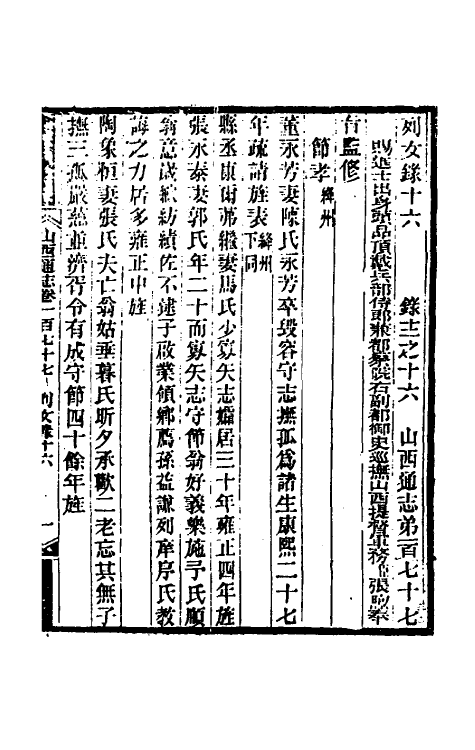 列女錄十六　錄十三之十六　山西通志第一百七十七
賜進士出身頭品頂戴兵部侍郎兼都察院右副都御史巡撫山西提督軍務臣張煦奉
旨監修
節孝絳州
董永芳妻陳氏永芳卒毀容守志撫孤為諸生康熙二十七
年疏請旌表絳州下同
縣丞康爾弟繼妻馬氏少寡矢志孀居三十年雍正四年旌
張永泰妻郭氏年二十而寡矢志守節翁好義樂施予氏順
翁意歲縮紡績佐不逮子啟業領鄉薦孫益謙列庠序氏教
誨之力居多雍正中旌
陶象桓妻張氏夫亡翁姑垂暮氏昕夕承歡二老忘其無子
撫三孤嚴慈並濟胥令有成守節四十餘年旌
山西通志卷一百七十七　列女錄十六　一